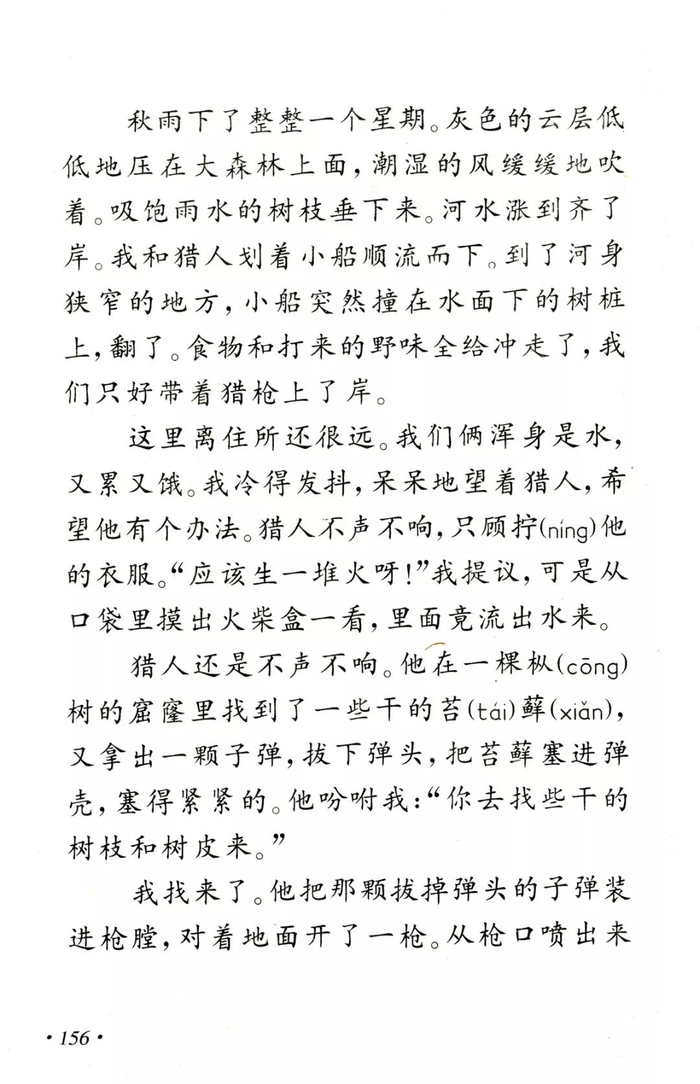 秋雨下了整整一个星期。灰色的云层低
低地压在大森林上面，潮湿的风缓缓地吹
着。吸饱雨水的树枝垂下来。河水涨到齐了
岸。我和猎人划着小船顺流而下。到了河身
狭窄的地方，小船突然撞在水面下的树桩
上，翻了。食物和打来的野味全给冲走了，我
们只好带着猎枪上了岸。
这里离住所还很远。我们俩浑身是水，
又累又饿。我冷得发抖，呆呆地望着猎人，希
望他有个办法。猎人不声不响，只顾拧(níng)他
的衣服。“应该生一堆火呀！”我提议，可是从
口袋里摸出火柴盒一看，里面竟流出水来。
猎人还是不声不响。他在一棵枞(cōng)
树的窟窿里找到了一些干的苔(tái)藓(xiǎn)，
又拿出一颗子弹，拔下弹头，把苔藓塞进弹
壳，塞得紧紧的。他吩咐我：“你去找些干的
树枝和树皮来。”
我找来了。他把那颗拔掉弹头的子弹装
进枪膛，对着地面开了一枪。从枪口喷出来
·156·